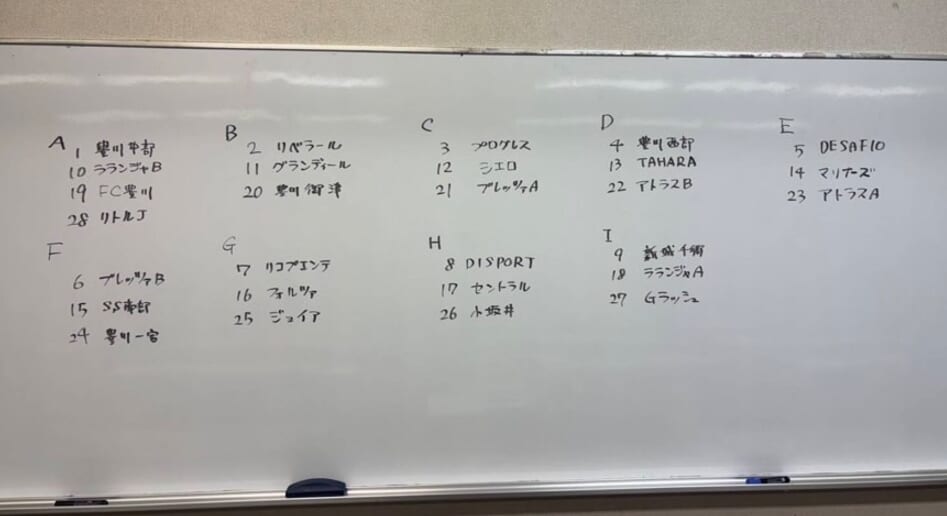 A
1 豊川中部
10 ラランジャB
19 FC豊川
28 リトルJ
B
2 リベラール
11 グランディール
20 豊川御津
C
3 プログレス
12 シエロ
21 ブレッツァA
D
4 豊川西部
13 TAHARA
22 アトラスB
E
5 DESAFIO
14 マリナーズ
23 アトラスA
F
6 ブレッツァB
15 SS南部
24 豊川一宮
G
7 リコプエンテ
16 フォルツァ
25 ジョイア
H
8 DISPORT
17 セントラル
26 小坂井
I
9 新城千郷
18 ラランジャA
27 Gラッシュ